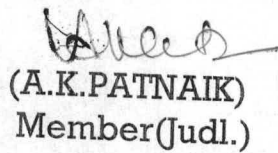 (A.K.PATNAIK)
Member(Judl.)